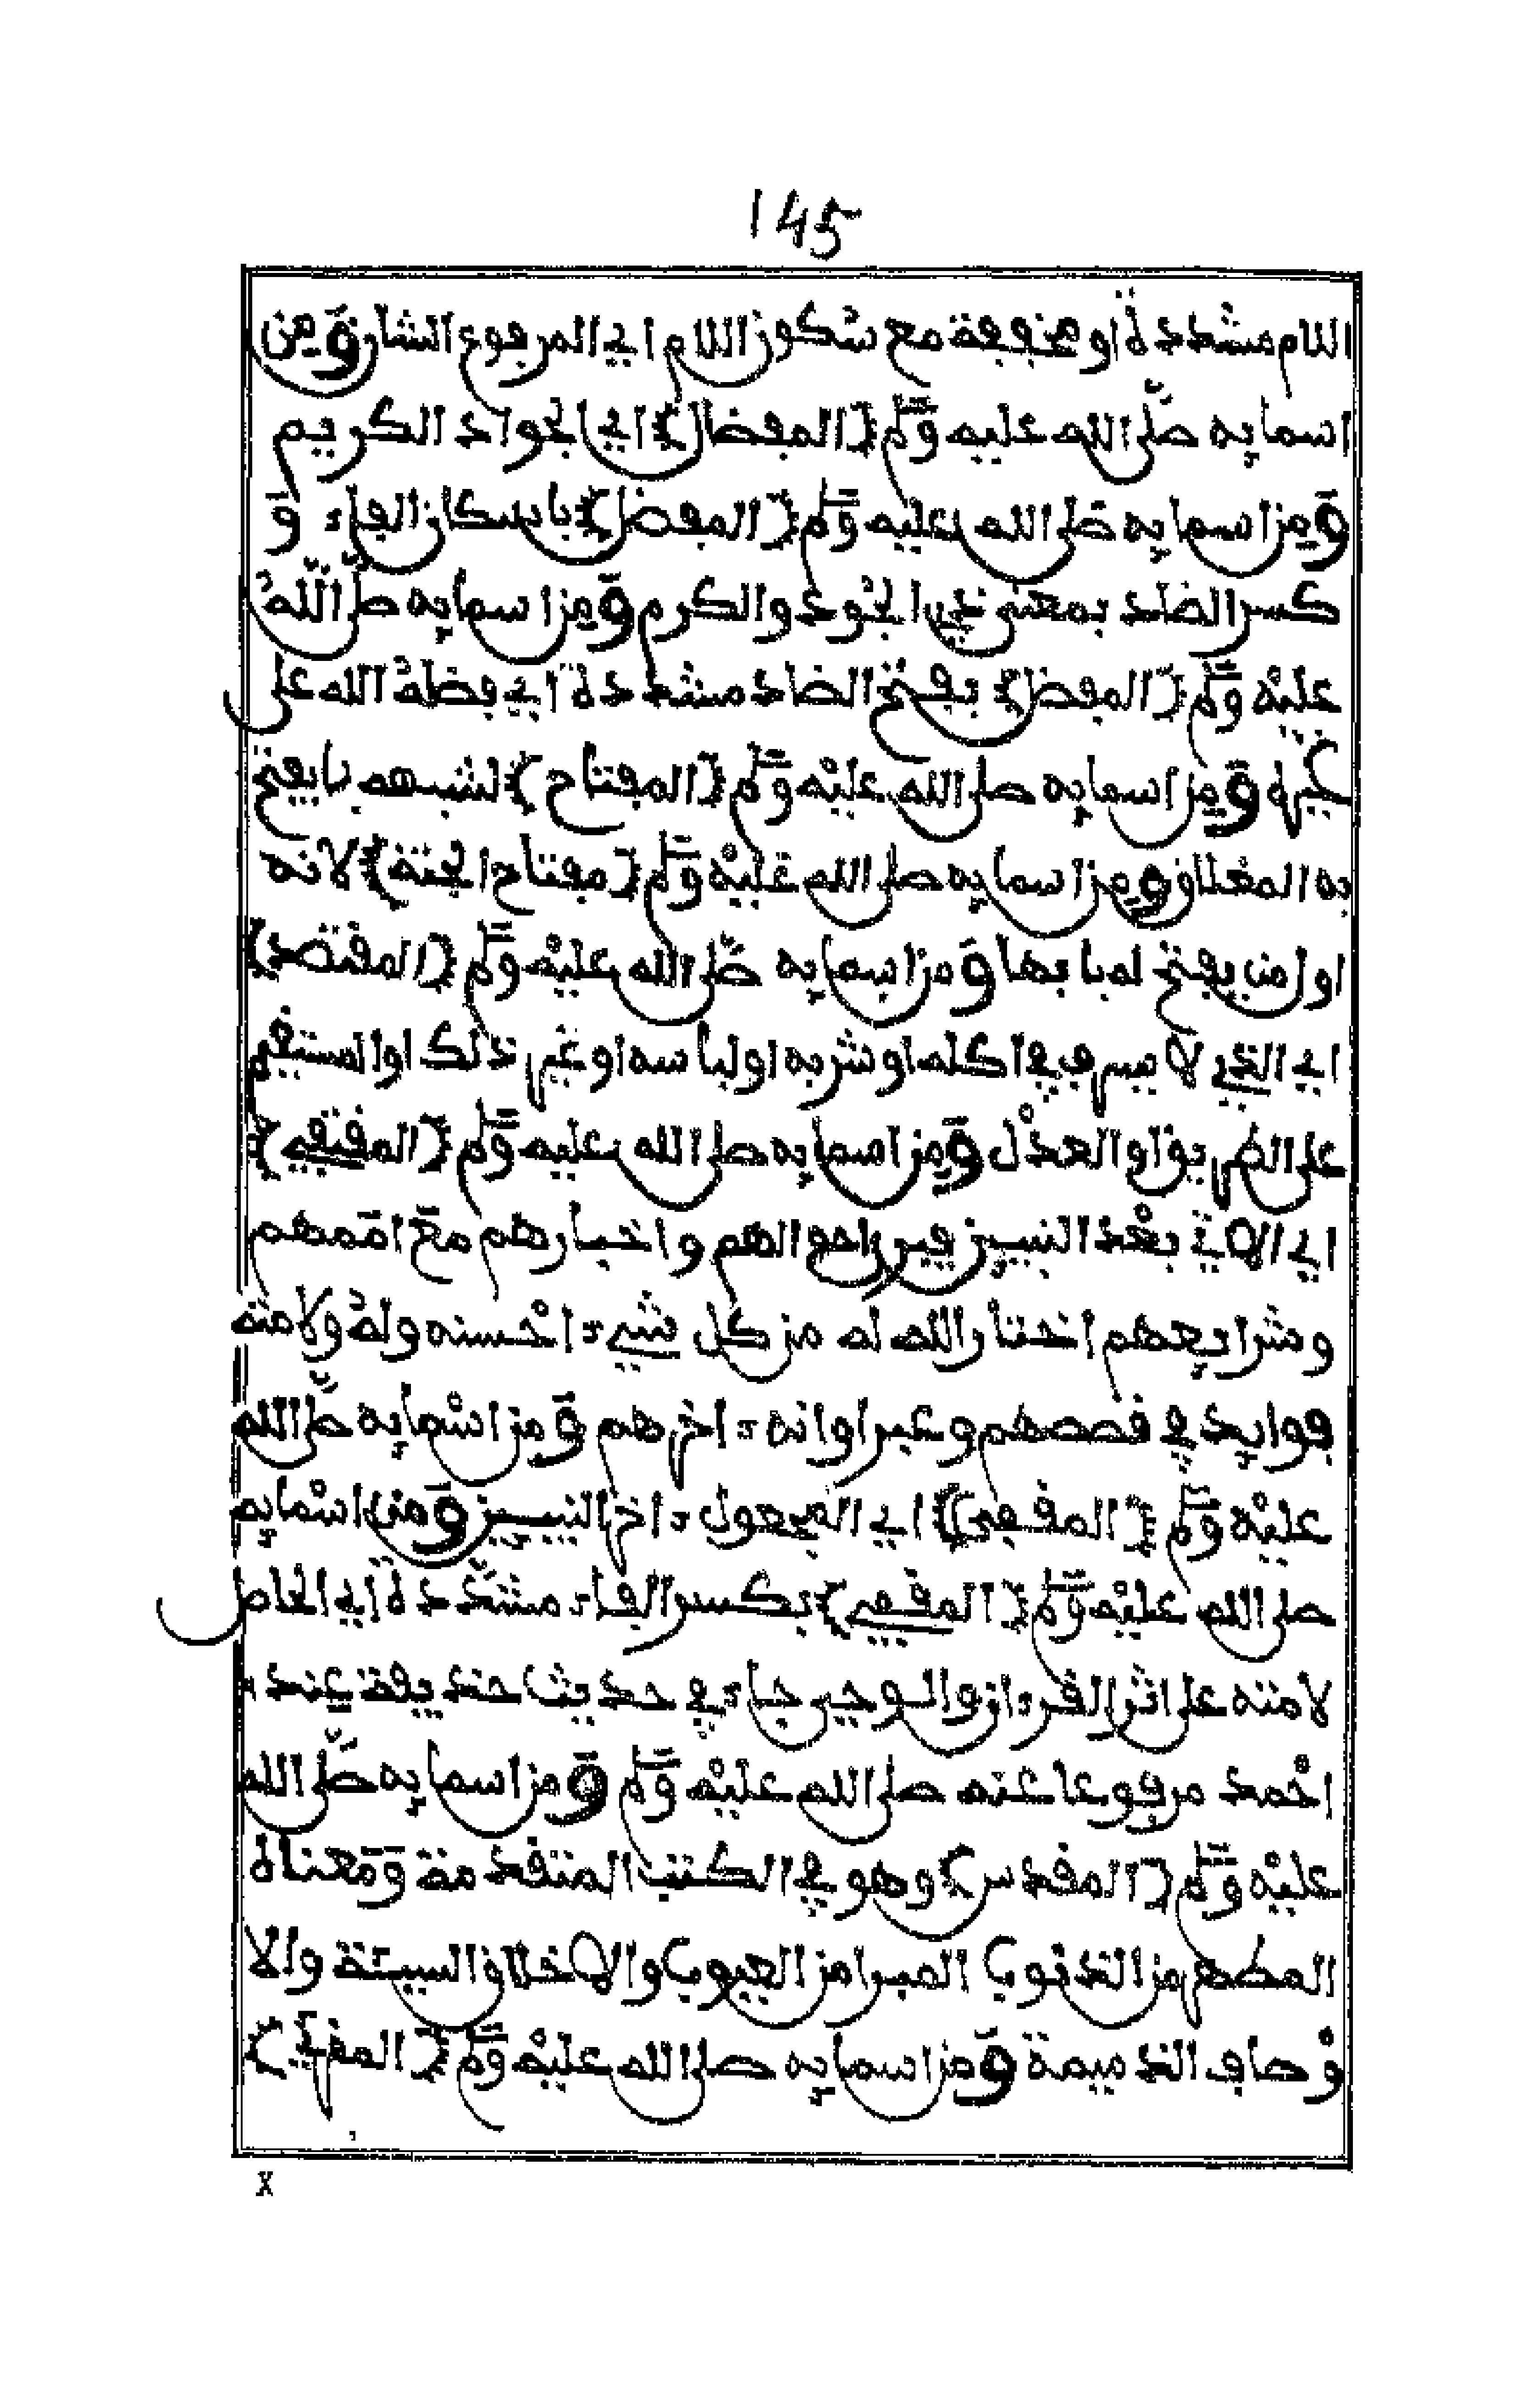 145
اللام مشددة او مخففة مع سكون اللام اي المرفوع الشان ومن
اسمايه صلى الله عليه وسلم (المفضال) اي الجواد الكريم
ومن اسمايه صلى الله عليه وسلم (المفضل) باسكان الفاء و
كسر الضاد بمعنى ذي الجود والكرم ومن اسمايه صلى الله
عليه وسلم (المفضل) بفتح الضاد مشددة اي فضله الله على
غيره ومن اسمايه صلى الله عليه وسلم (المفتاح) لشبهه بما يفتح
به المغلاق ومن اسمايه صلى الله عليه وسلم (مفتاح الجنة) لانه
اول من يفتح له بابها ومن اسمايه صلى الله عليه وسلم (المقتصد)
اي الذي لا يسرف في اكله او شربه او لباسه او غير ذلك او المستقيم
على الطريق او العدل ومن اسمايه صلى الله عليه وسلم (المقتفي)
اي الاتي بعد النبيين احوالهم واخبارهم مع اممهم
وشرايعهم اختار الله له من كل شيء احسنه وله ولامته
فوايد في قصصهم وعبر اوانه اخرهم ومن اسمايه صلى الله
عليه وسلم (المقفى) اي المجعول اخر النبيين ومن اسمايه
صلى الله عليه وسلم (المقفي) بكسر الفاء مشددة اي الحامل
لامته على اثر القرءان والوحي جاء في حديث حذيفة عند
احمد مرفوعا عنه صلى الله عليه وسلم ومن اسمايه صلى الله
عليه وسلم (المقدس) وهو في الكتب المتقدمة ومعناه
المطهر من الذنوب المبرا من العيوب والاخلاق السيئة والا
وصاف الذميمة ومن اسمايه صلى الله عليه وسلم (المقرئ)
x